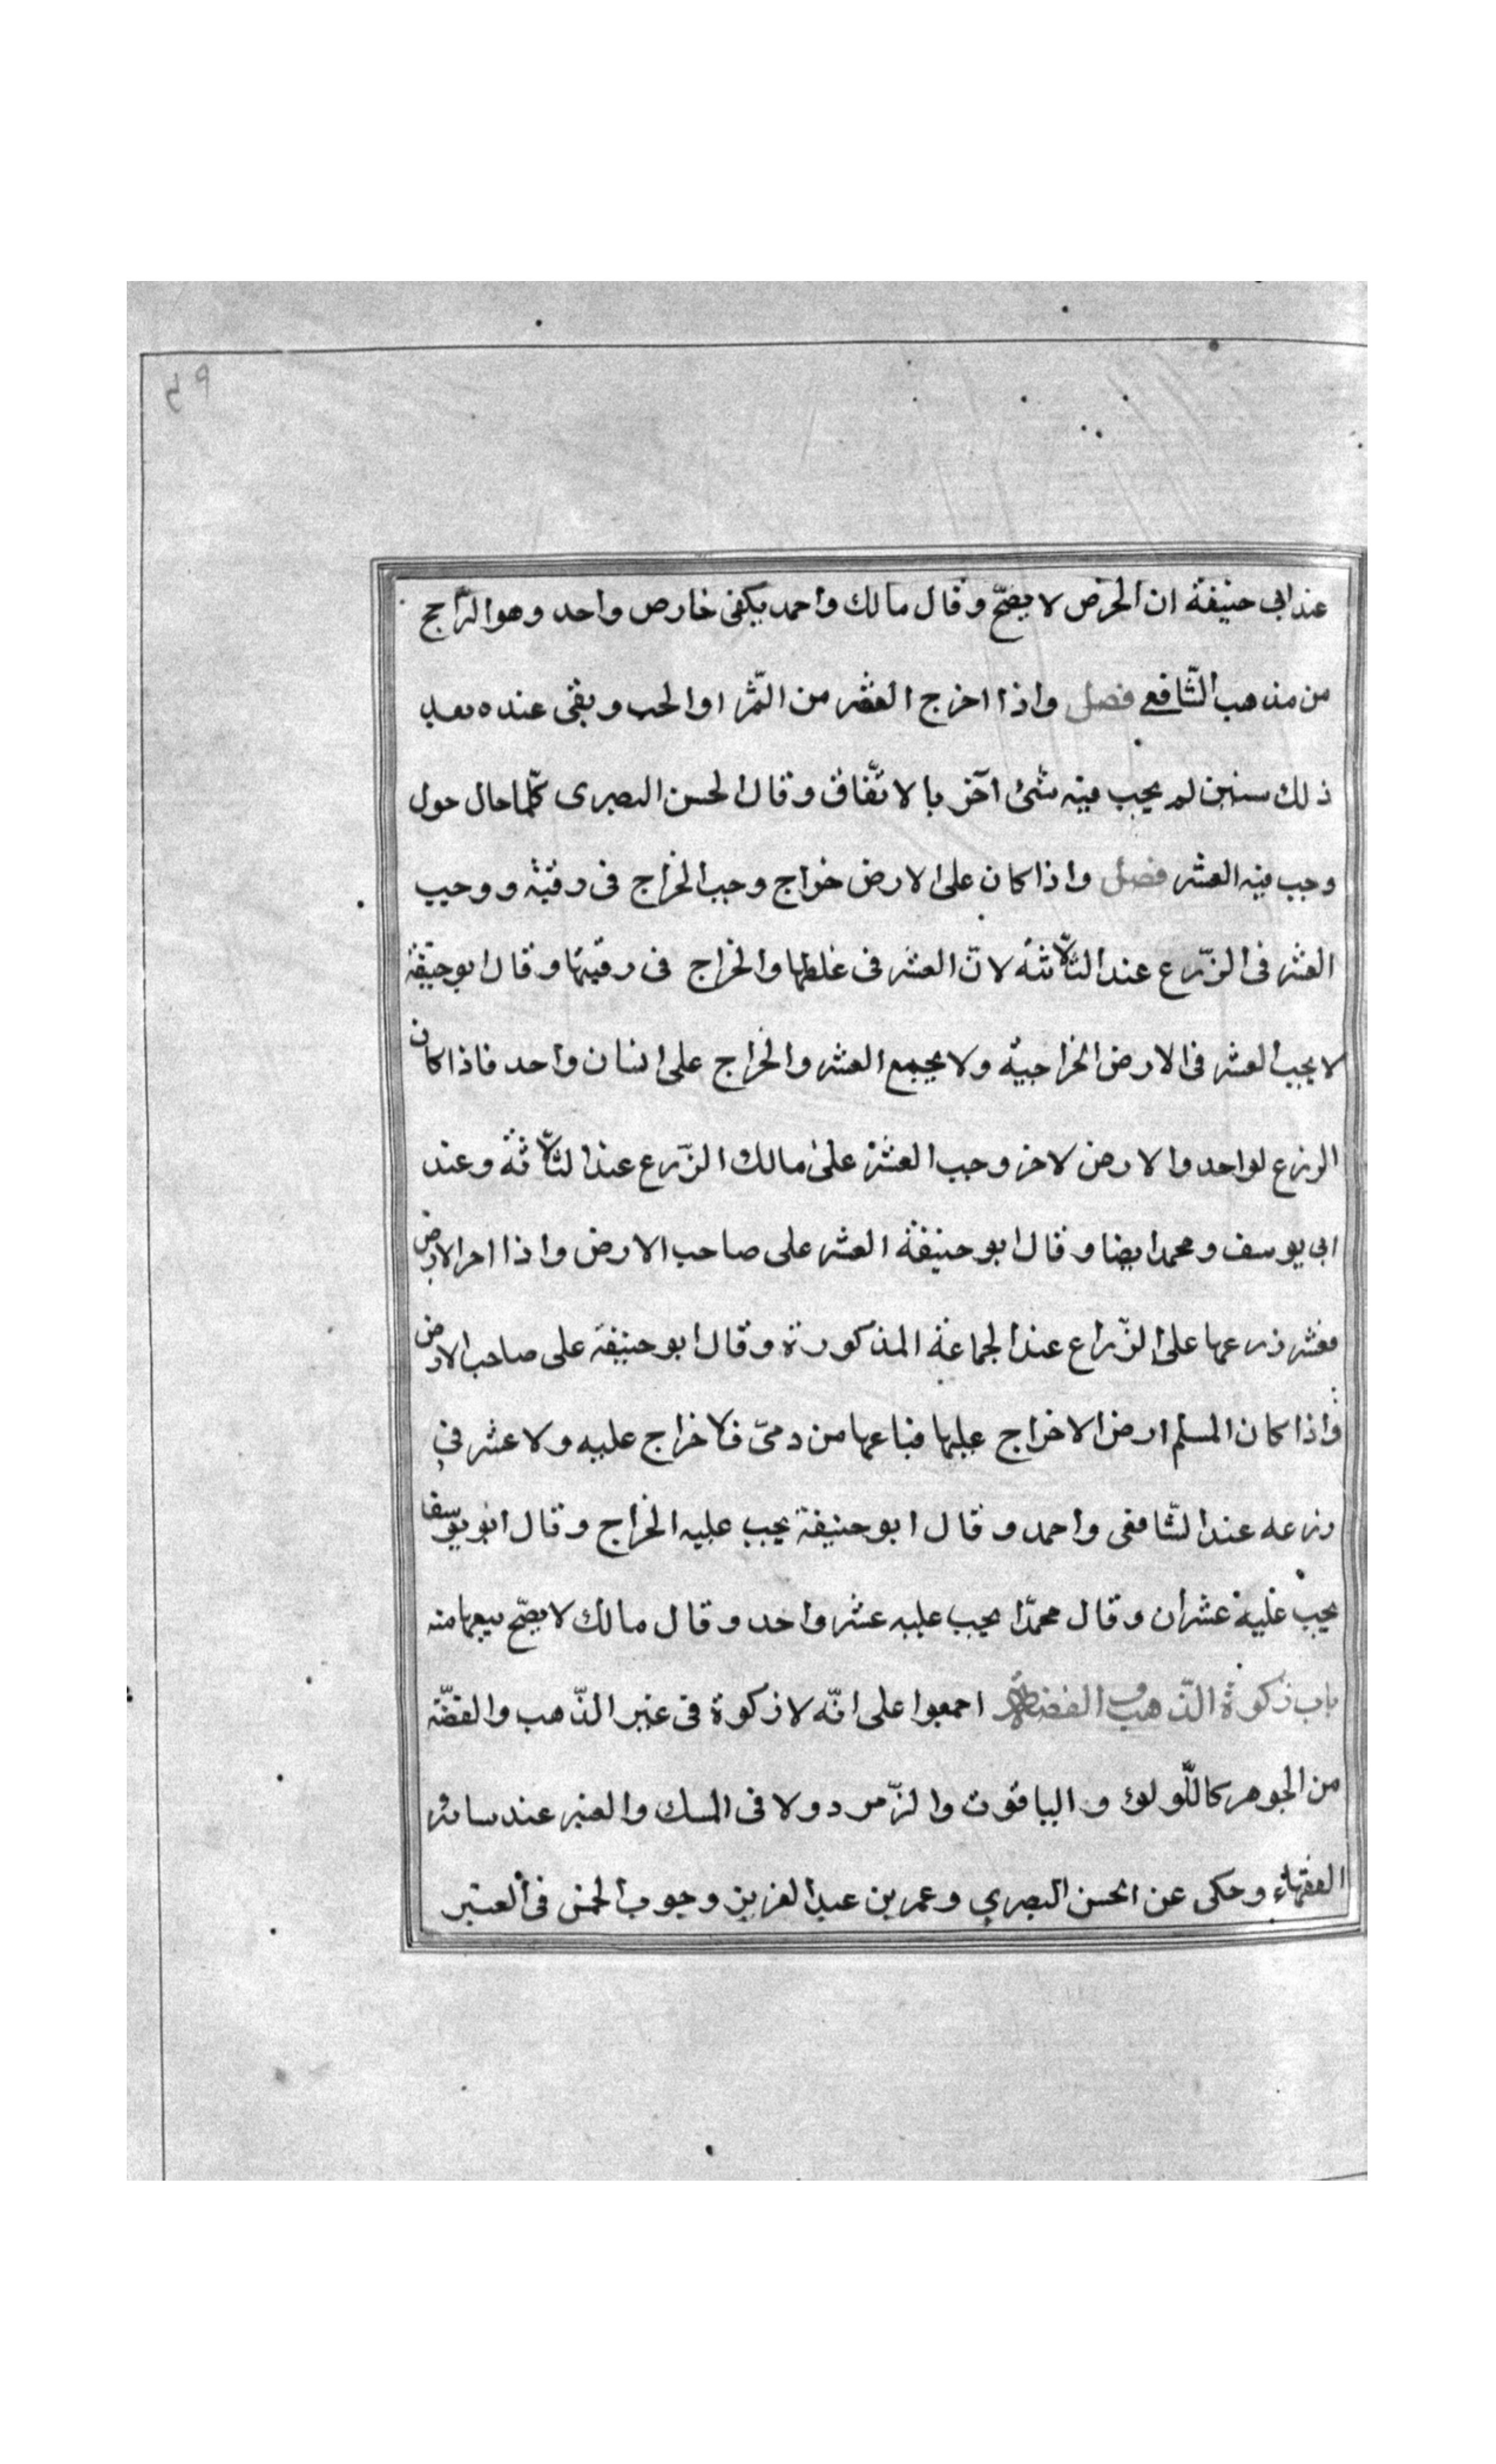 عند ابى حنيفة ان الخرص لا يصحّ وقال مالك واحمد يكفى خارص واحد وهو الرّاجح
من مذهب الشّافعى فصل واذا اخرج العشر من الثّمر او الحب وبقى عنده بعد
ذلك سنين لم يجب فيه شئ آخر بالاتّفاق وقال الحسن البصرى كلّما حال حول
وجب فيه العشر فصل واذا كان على الارض خراج وجب الخراج فى وقته ووجب
العشر فى الزّرع عند الثّلاثة لانّ العشر فى غلّتها والخراج فى رقبتها وقال ابو حنيفة
لا يجب العشر فى الارض الخراجيّة ولا يجمع العشر والخراج على انسان واحد فاذا كان
الزرع لواحد والارض لاخر وجب العشر على مالك الزّرع عند الثّلاثة وعند
ابى يوسف ومحمد ايضا وقال ابو حنيفة العشر على صاحب الارض واذا اجر الارض
فعشر زرعها على الزّراع عند الجماعة المذكورة وقال ابو حنيفة على صاحب الارض
واذا كان المسلم ارض لا خراج عليها فباعها من دمىّ فلا خراج عليه ولا عشر في
زرعه عند الشّافعى واحمد وقال ابو حنيفة يجب عليه الخراج وقال ابو يوسف
يجب عليه عشران وقال محمدّ يجب عليه عشر واحد وقال مالك لا يصحّ بيعها منه
باب زكوة الذّهب والفضة اجمعوا على انّه لا زكوة فى غير الذّهب والفضّة
من الجوهر كاللّولوء والياقوت والزّمرد ولا فى المسك والعنبر عند سائر
الفقهاء وحكى عن الحسن البصري وعمر بن عبد العزيز وجوب الخمس فى العنبر